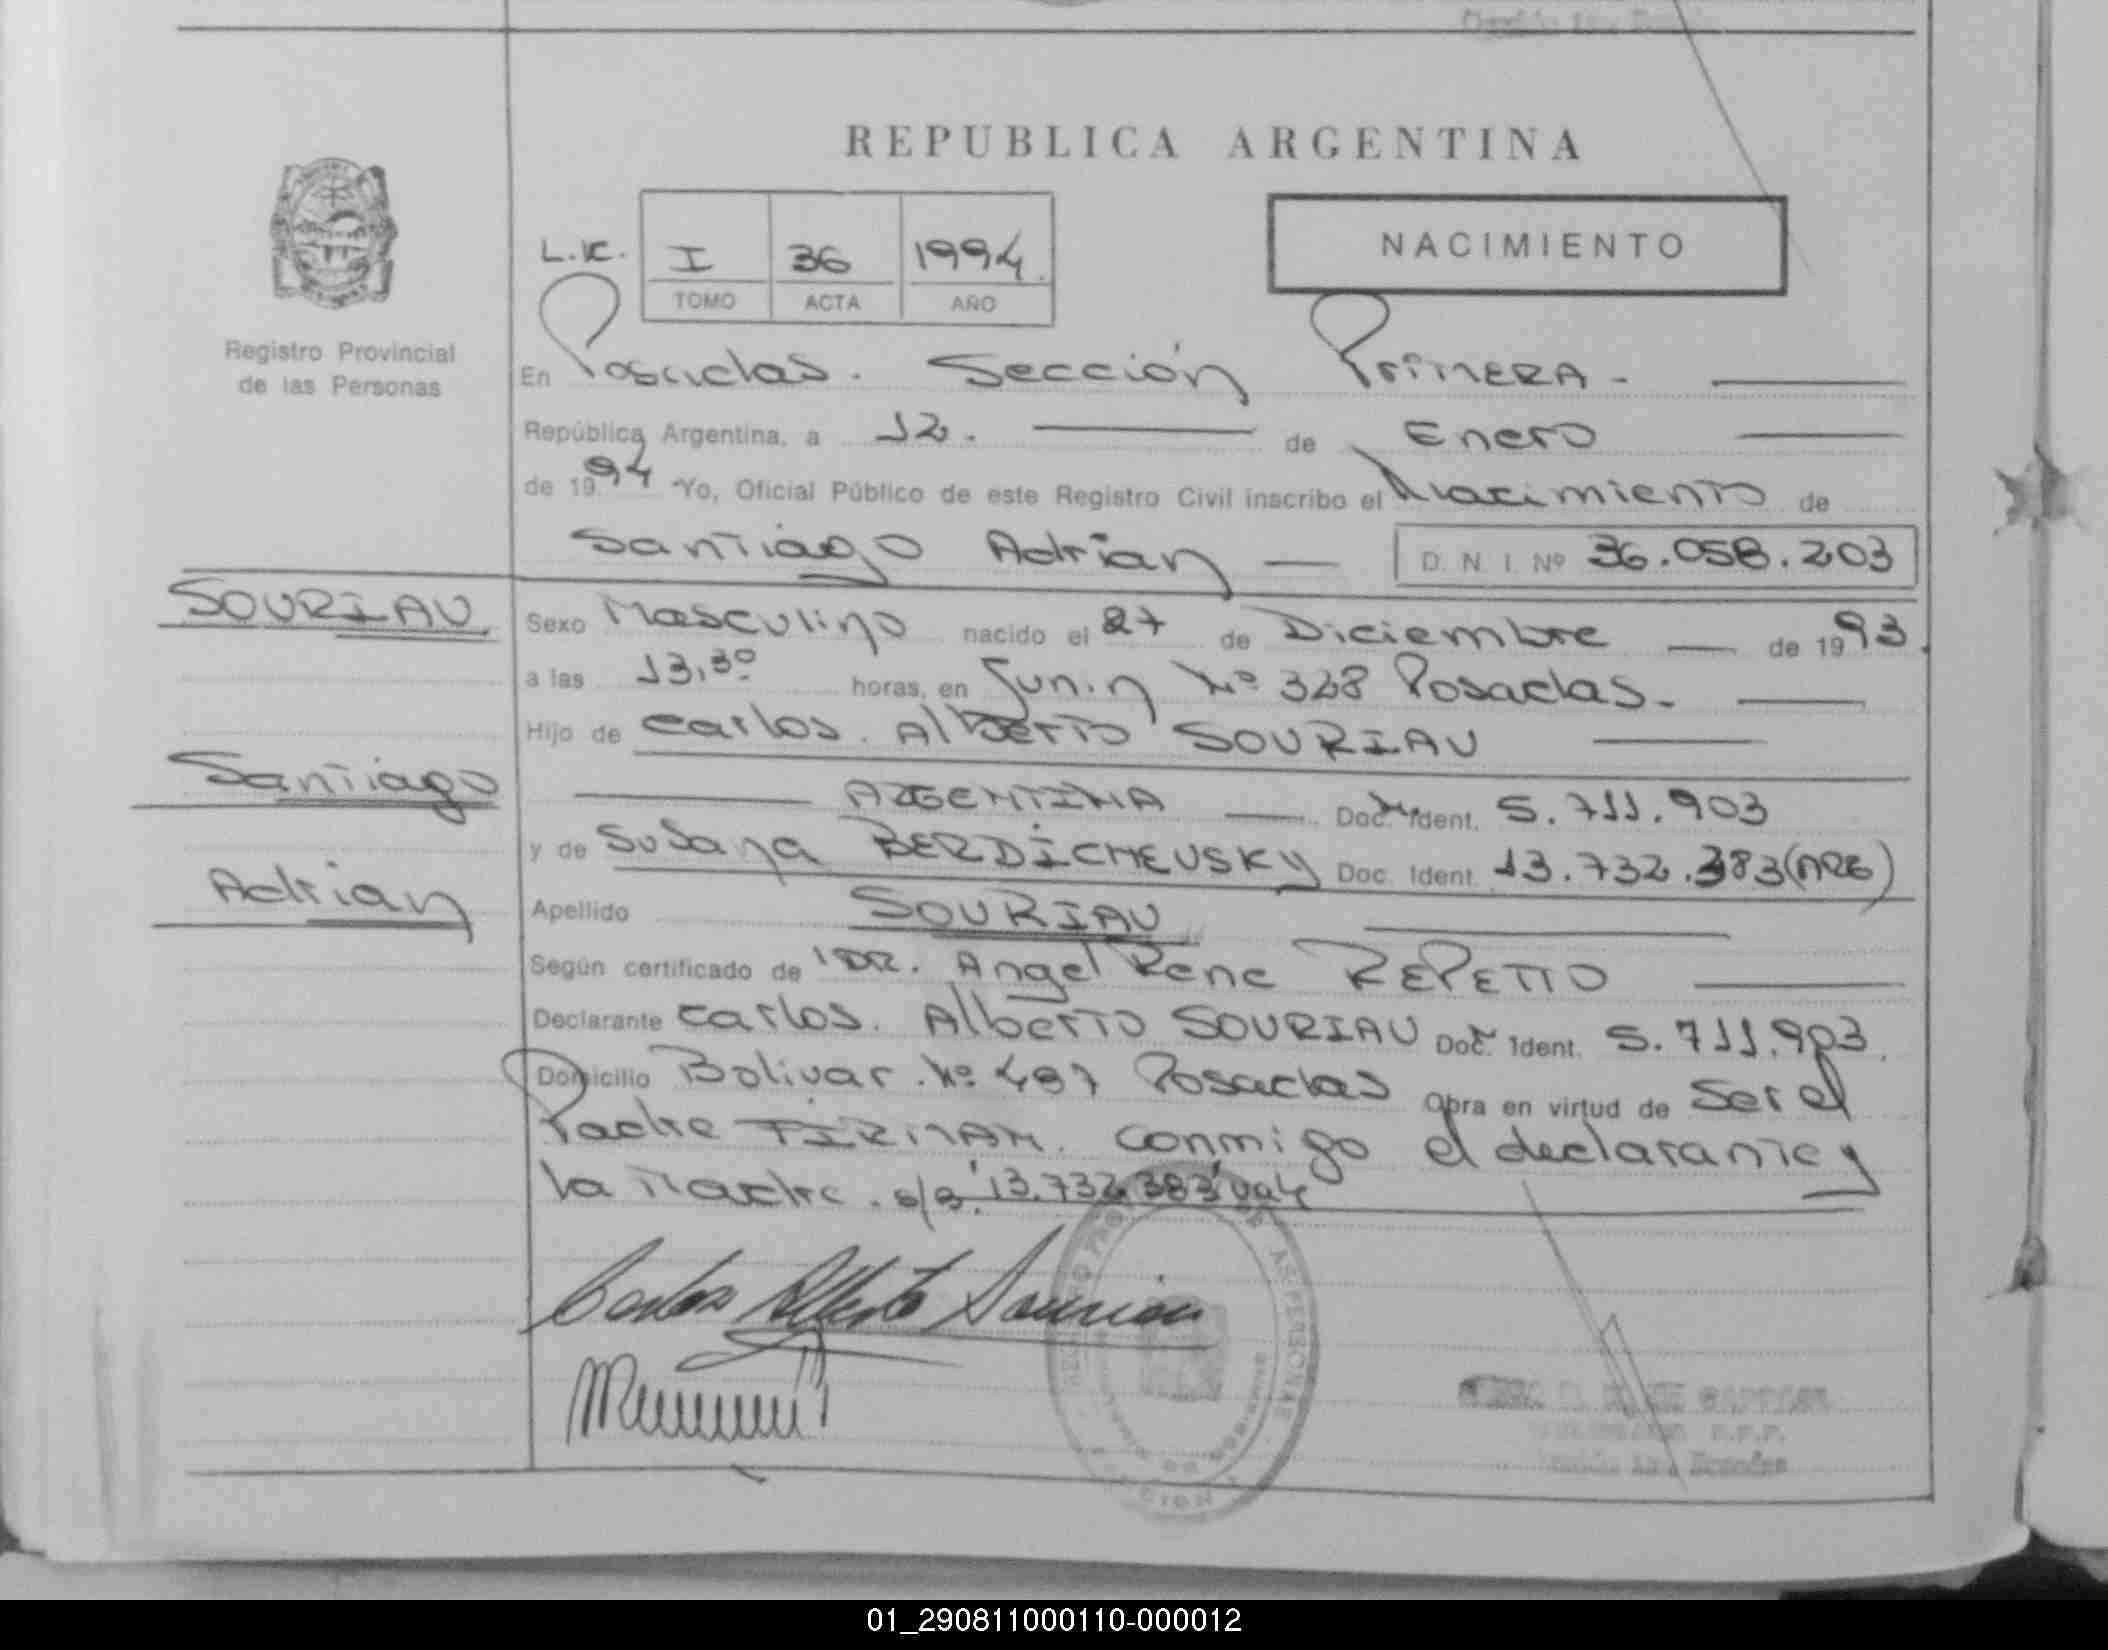 REPUBLICA ARGENTINA
L.K. I 36 1994
TOMO ACTA AÑO
NACIMIENTO
Registro Provincial
de las Personas
En Posadas. Sección Primera -
República Argentina, a 12. de Enero
de 1994 Yo, Oficial Público de este Registro Civil inscribo el Nacimiento de
Santiago Adrian D. N. I. Nº 36.058.203
SOURIAU
Santiago
Adrian
Sexo Masculino nacido el 27 de Diciembre de 1993.
a las 13,30 horas, en Junin Nº 328 Posadas.
Hijo de Carlos. Alberto SOURIAU
ARGENTINA Doc. Ident. 5.711.903
y de Susana BERDICHEVSKY Doc. Ident. 13.732.383(ARG)
Apellido SOURIAU
Según certificado de DR. Angel Rene REPETTO
Declarante Carlos. Alberto SOURIAU Doc. Ident. 5.711.903.
Domicilio Bolivar. Nº 487 Posadas Obra en virtud de Ser el
Padre FIRMAN. Conmigo el declarante y
la Madre. s/b. 13.732.383 vale
Carlos Alberto Souriau
01_290811000110-000012